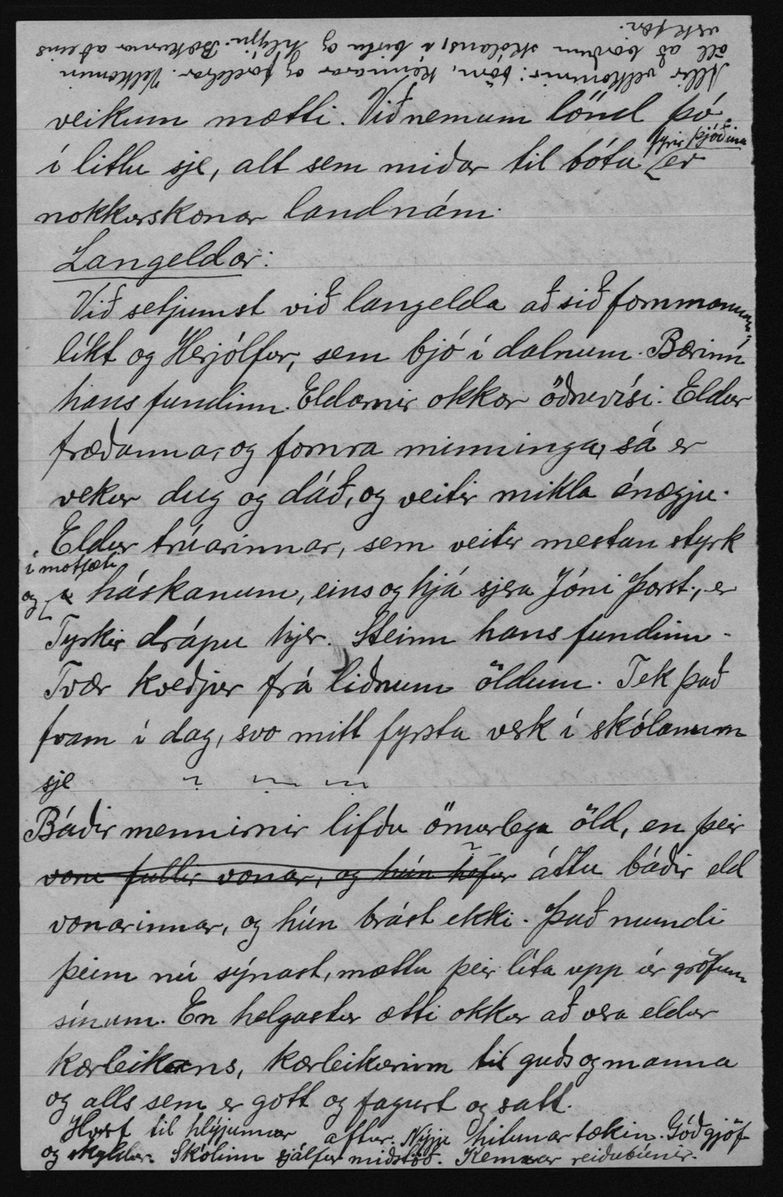 Allir velkomnir: börn, kennarar og foreldrar. Velkomin
öll að borðum skólans, í birtu og hlýju. Bækurnar að eins
veikum mætti. Við nemum lönd þó
í litlu sje, alt sem miðar til bóta fyrir þjóðina er
nokkurskonar landnám.
Langeldar:
Við setjumst við langelda að sið fornmanna,
líkt og Herjólfur, sem bjó í dalnum. Bærinn
hans fundinn. Eldarnir okkar öðruvísi. Eldur
fræðanna, og fornra minninga, sá er
vekur dug og dáð, og veitir mikla ánægju.
Eldur trúarinnar, sem veitir mestan styrk
í motlæti
og í háskanum, eins og hjá sjera Jóni Þorst., er
Tyrkir drápu hjer. Steinn hans fundinn.
Tvær kveðjur frá liðnum öldum. Tek það
fram í dag, svo mitt fyrsta verk í skólanum
sje
Báðir mennirnir lifðu ömurlega öld, en þeir
voru fullir vonar, og hún hefur áttu báðir eld
vonarinnar, og hún brást ekki. Það mundi
þeim nú sýnast, mættu þeir líta upp úr gröfum
sínum. En helgastur ætti okkur að vera eldur
kærleikans, kærleikurinn til guðs og manna
og alls sem er gott og fagurt og satt.
Horf til hlýjunnar aftur. Nýju hitunartækin. Góð gjöf
og skyldur. Skólinn sjálfur miðstöð. reiðubúnir.